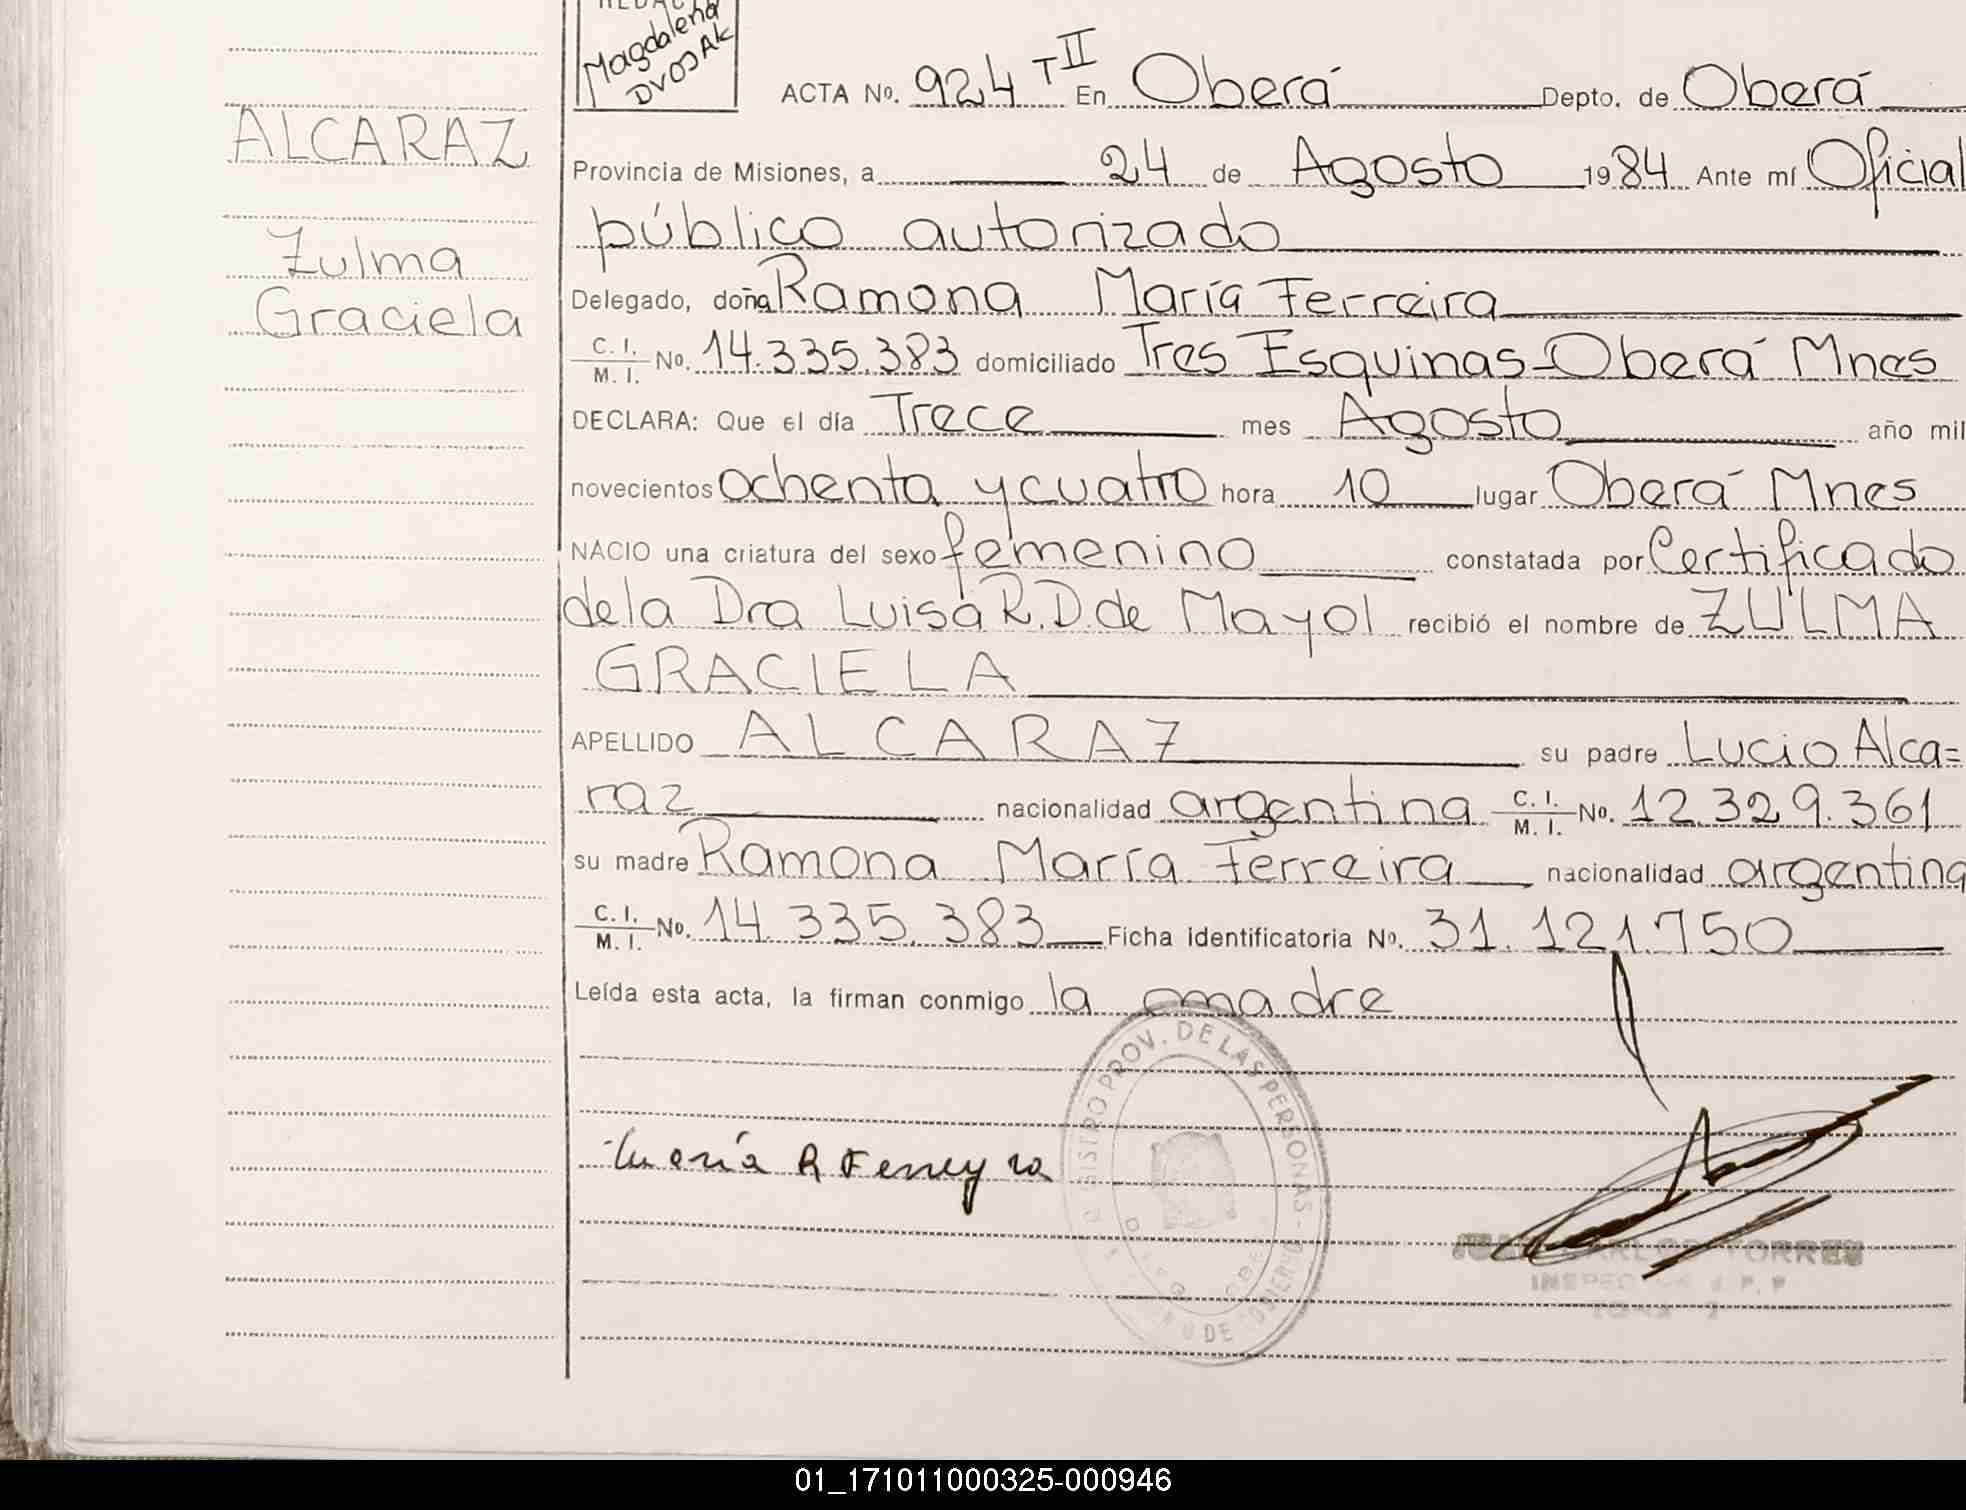 Magdalena
DVOJAK
ALCARAZ
Zulma
Graciela
ACTA No. 924 T II En Oberá Depto. de Oberá
Provincia de Misiones, a 24 de Agosto 1984 Ante mí Oficial
público autorizado
Delegado, doña Ramona María Ferreira
C. I. / M. I. No. 14.335.383 domiciliado Tres Esquinas-Oberá Mnes
DECLARA: Que el día Trece mes Agosto año mil
novecientos ochenta y cuatro hora 10 lugar Oberá Mnes
NACIO una criatura del sexo femenino constatada por Certificado
de la Dra Luisa R.D. de Mayol recibió el nombre de ZULMA
GRACIELA
APELLIDO ALCARAZ su padre Lucio Alca=
raz nacionalidad argentina C. I. / M. I. No. 12.329.361
su madre Ramona María Ferreira nacionalidad argentina
C. I. / M. I. No. 14.335.383 Ficha identificatoria No. 31.121.750
Leída esta acta, la firman conmigo la madre
REGISTRO PROV. DE LAS PERSONAS
María R Ferreyra
TORRES
01_171011000325-000946